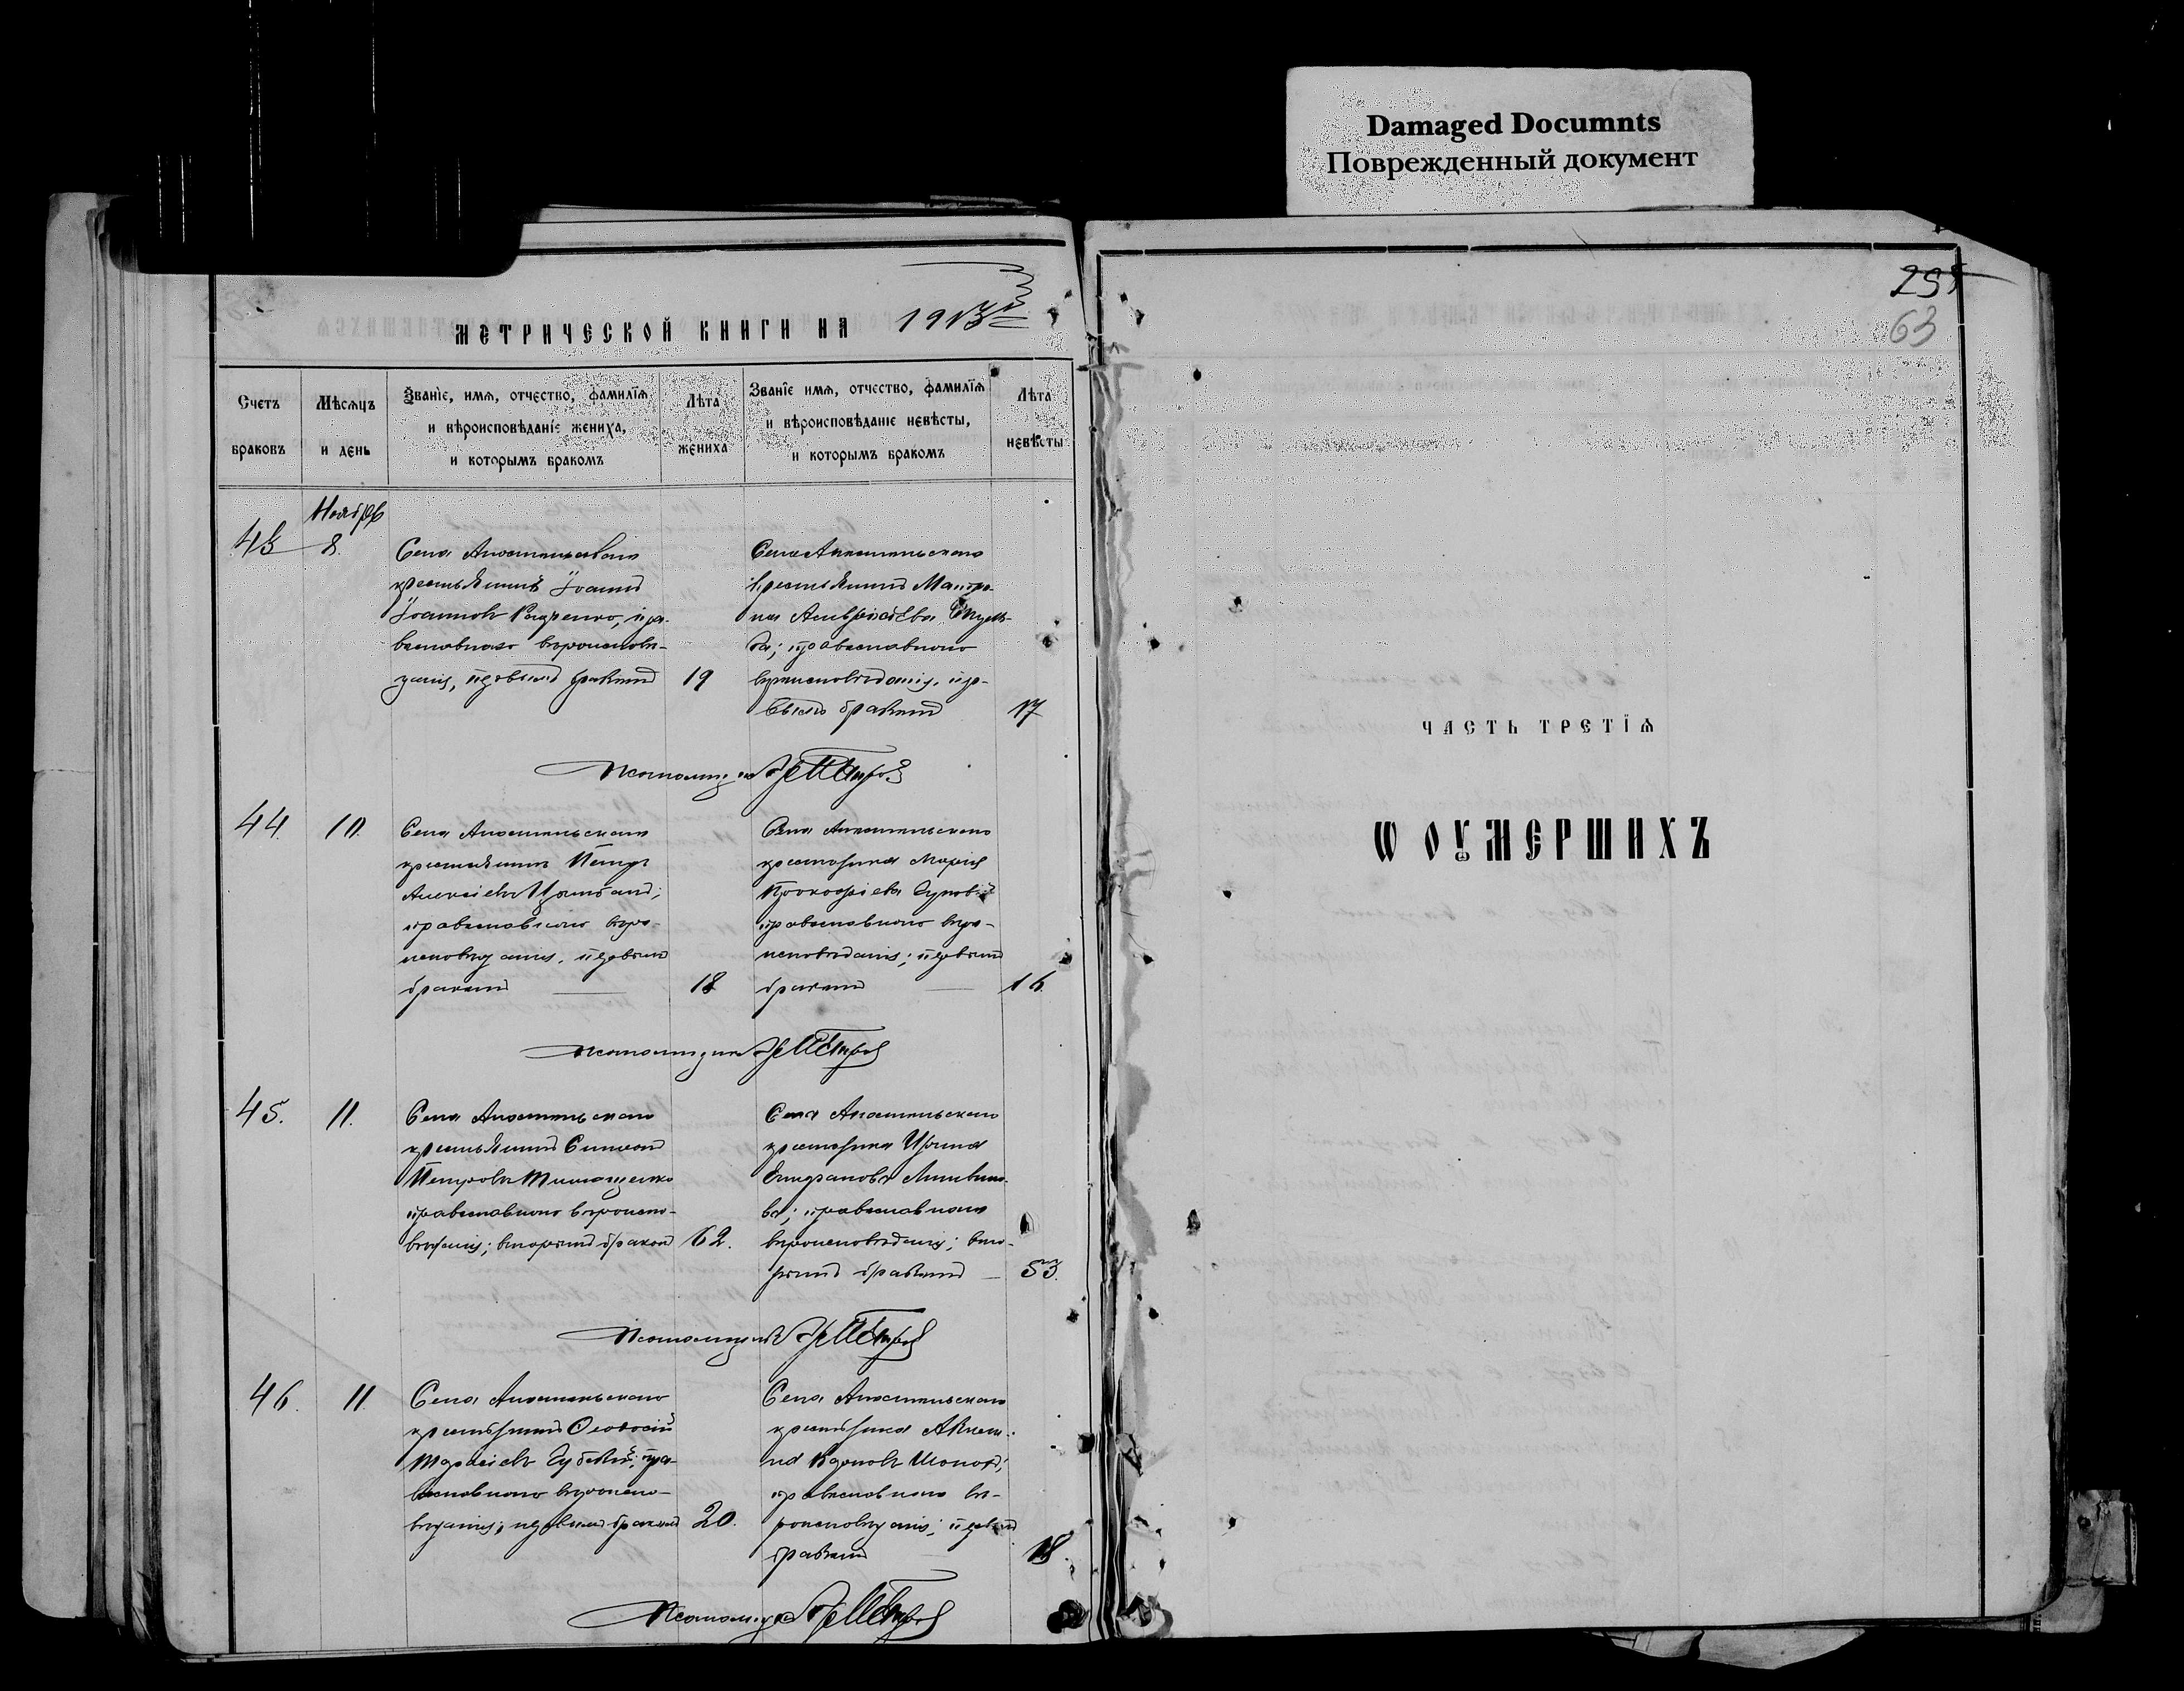 Damaged Documnts
Поврежденный документ
МЕТРИЧЕСКОЙ КНИГИ НА 1913
Счетъ браковъ
Мѣсѧцъ и день
Званїе, имѧ, отчество, фамилїѧ
и вѣроисповѣданїе жениха,
и которымъ бракомъ
Лѣта жениха
Званїе имѧ, отчество, фамилїѧ
и вѣроисповѣданїе невѣсты,
и которымъ бракомъ
Лѣта невѣсты
Ноябрь
43 8.
Села Апостольскаго
крестьянинъ Іоаннъ
Іоанновъ пра-
вославнаго вѣроисповѣ-
данія, первымъ бракомъ 19
Села Апостольскаго
крестьянина Матро-
на
да; православнаго
вѣроисповѣданія, пер-
вымъ бракомъ 17
44. 10.
Села Апостольскаго
крестьянинъ Петръ
Алексіевъ
православнаго вѣро-
исповѣданія, первымъ
бракомъ 18
Села Апостольскаго
крестьянка Марія
Прокофіева
православнаго вѣро-
исповѣданія; первымъ
бракомъ 16.
45. 11.
Села Апостольскаго
крестьянинъ Симеонъ
Петровъ Тимощенко
православнаго вѣроиспо-
вѣданія; вторымъ бракомъ 62.
Села Апостольскаго
крестьянка Ирина
Епифанова Литвино-
ва; православнаго
вѣроисповѣданія; вто-
рымъ бракомъ 53.
46. 11.
Села Апостольскаго
крестьянинъ Ѳеодосій
Тарасіевъ пра-
вославнаго вѣроиспо-
вѣданія; первымъ бракомъ 20.
Села Апостольскаго
крестьянка
православнаго вѣ-
роисповѣданія; первымъ
бракомъ 18.
295
63
ЧАСТЬ ТРЕТЇѦ
Ѡ ОУМЕРШИХЪ